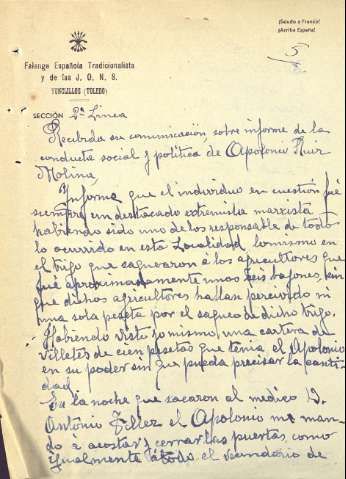 ¡Saludo a Franco!
¡Arriba España!
5
Falange Española Tradicionalista
y de las J. O. N. S.
YUNCLILLOS (TOLEDO)
SECCIÓN 2ª Linea
Recibida su comunicación, sobre informe de la
conducta social y politica de Apolonio Ruiz
Molina,
Informo que el individuo en cuestión fué
siempre un destacado extremista marxista
habiendo sido uno de los responsable de todo
lo ocurrido en esta Localidad lo mismo en
el trigo que saquearon á los agricultores que
fué aproximadamente unos seis bagones, sin
que dichos agricultores hallan percivido ni
una sola peseta por el saqueo de dicho trigo.
Habiendo visto yo mismo, una cartera de
villetes de cien pesetas que tenia el Apolonio
en su poder sin que pueda precisar la canti-
dad
En la noche que sacaron al medico D.
Antonio Tellez el Apolonio me man-
do á acostar y cerrar las puertas como
igualmente á todo el secundario de